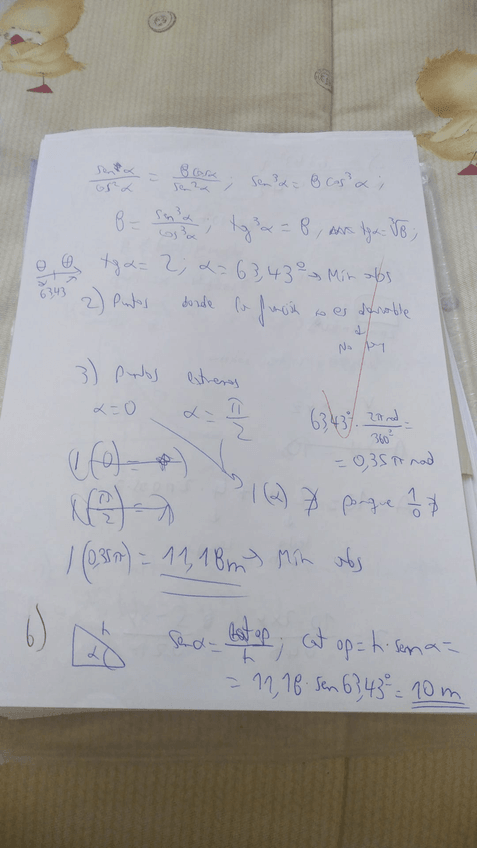 sen α / cos² α = 8 cos α / sen² α ; sen³ α = 8 cos³ α ;
8 = sen³ α / cos³ α ; tg³ α = 8 , tg α = ∛8 ;
⊖ ⊕ tg α = 2 ; α = 63,43° → Min abs
63,43
2) Puntos donde la función no es derivable
↓
No hay
3) Puntos extremos
α = 0 α = π/2
63,43° · 2π rad / 360° =
= 0,35 π rad
l (0) =
l (π/2) =
l (α) ∄ porque 1/0 ∄
l (0,35π) = 11,18 m → Min abs
b)
h
α
sen α = cat op / h ; cat op = h · sen α =
= 11,18 · sen 63,43° = 10 m